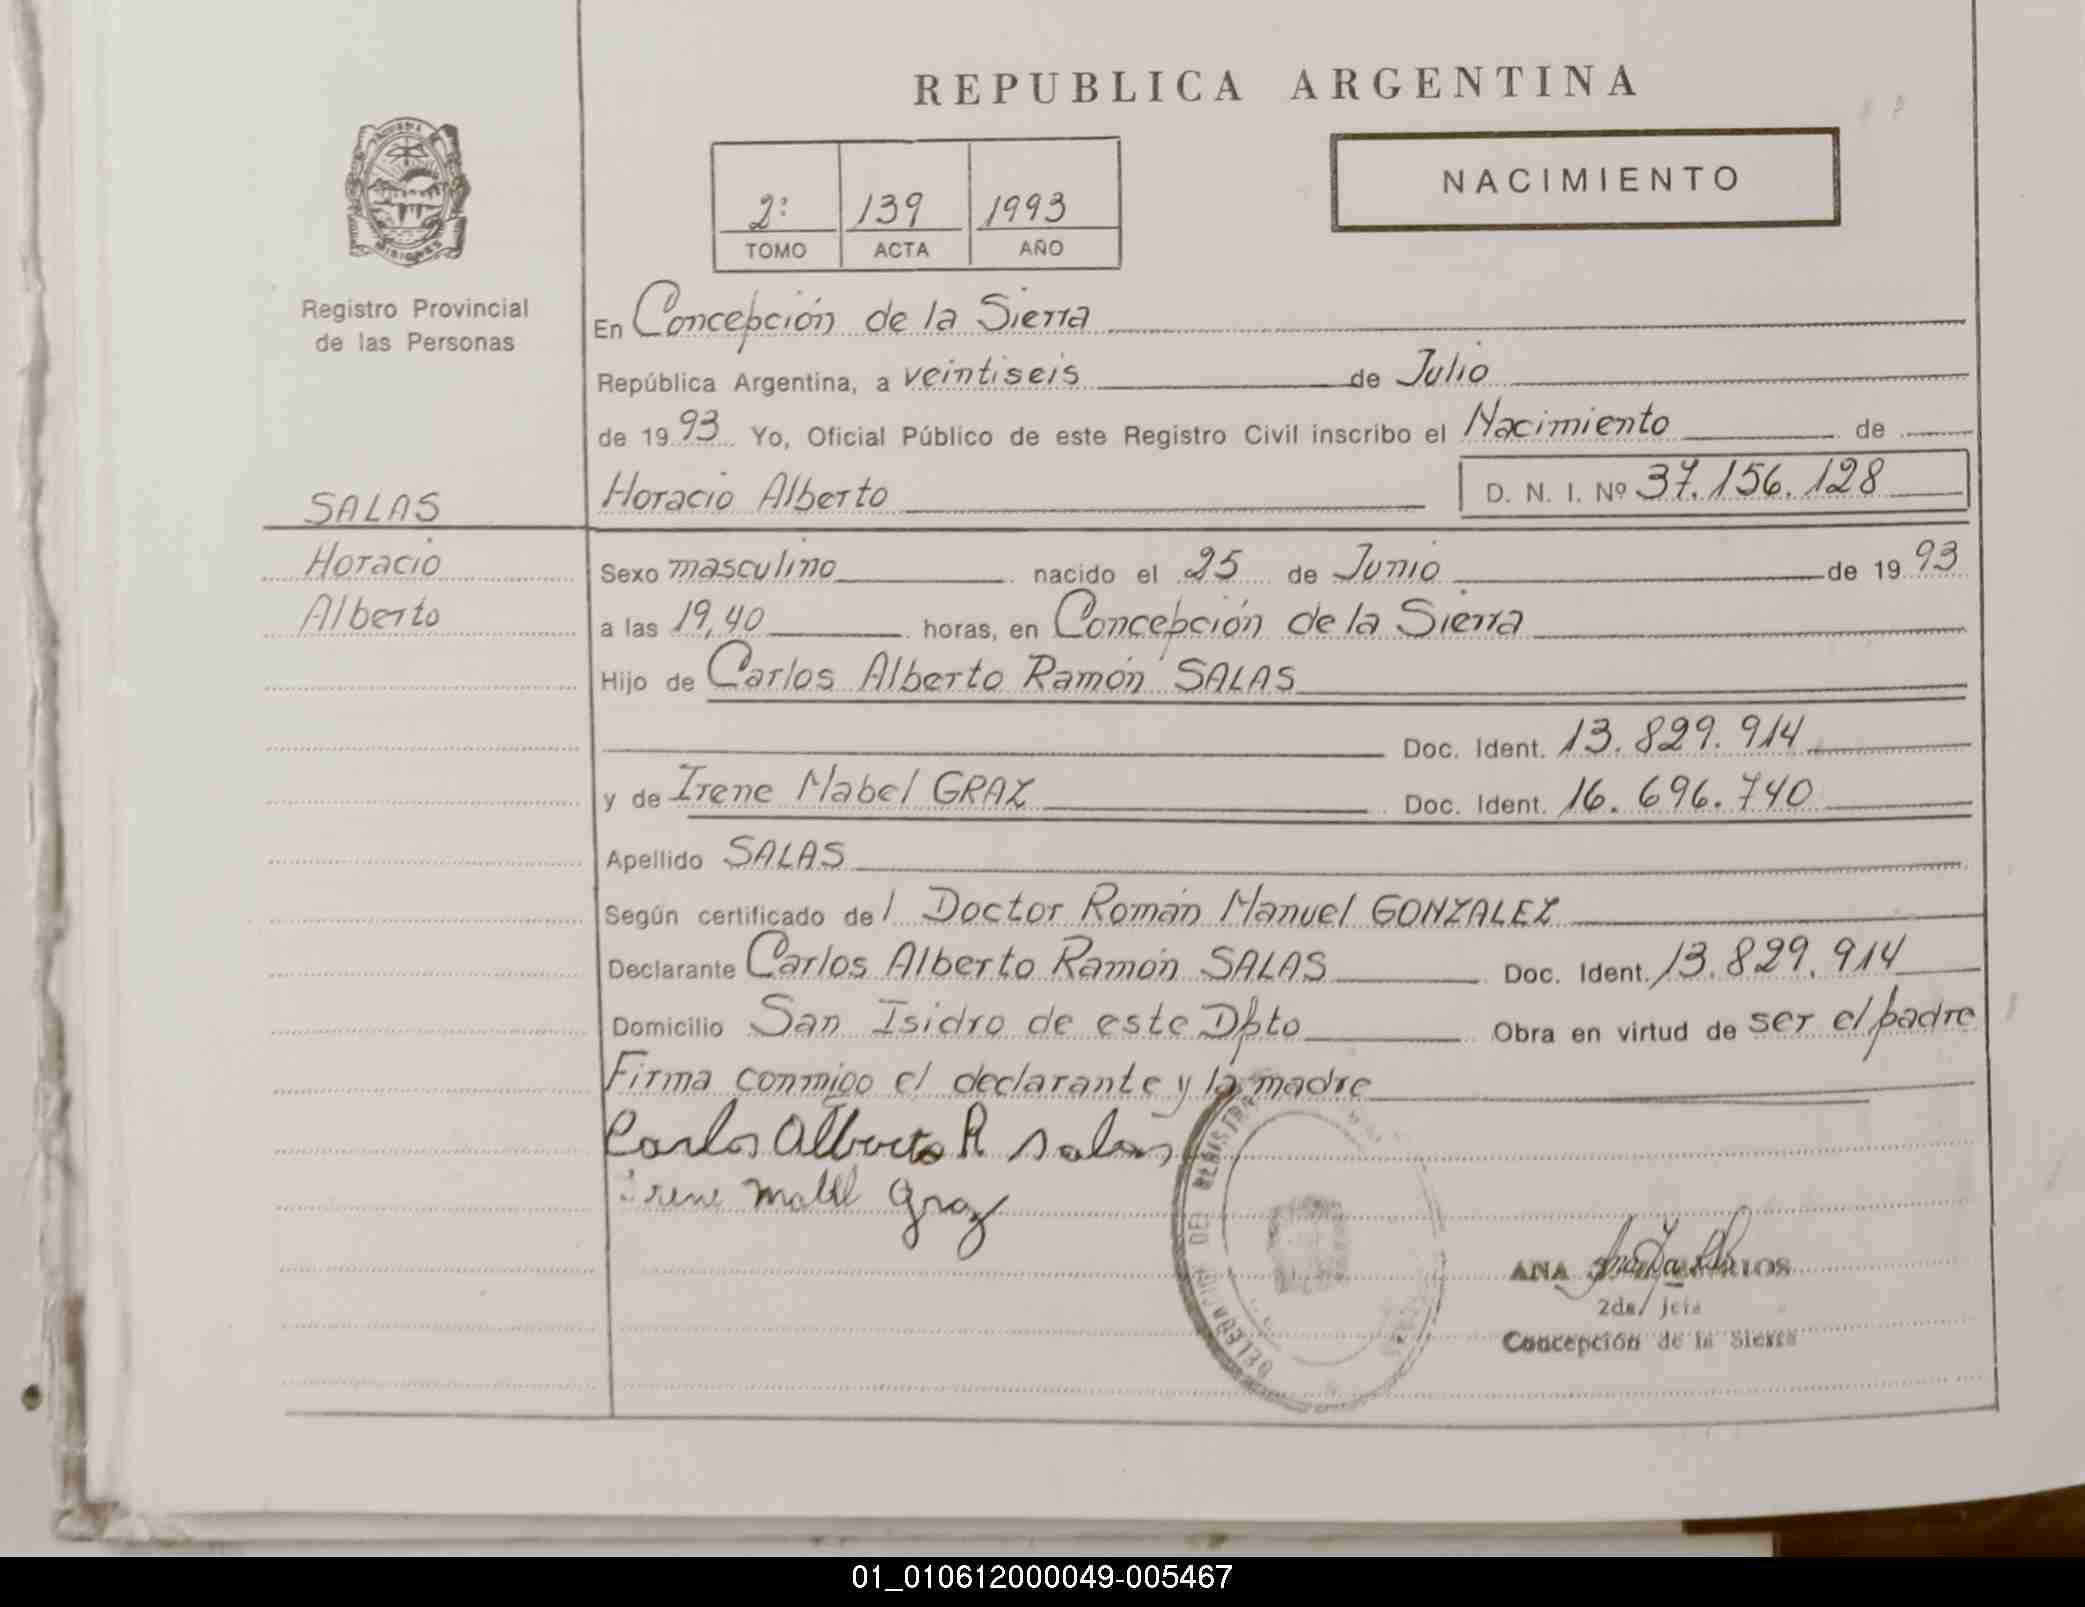 REPUBLICA ARGENTINA
NACIMIENTO
2: 139 1993
TOMO ACTA AÑO
MISIONES
Registro Provincial
de las Personas
SALAS
Horacio
Alberto
En Concepción de la Sierra
República Argentina, a veintiseis de Julio
de 1993 Yo, Oficial Público de este Registro Civil inscribo el Nacimiento de
Horacio Alberto D. N. I. Nº 37.156.128
Sexo masculino nacido el 25 de Junio de 1993
a las 19,40 horas, en Concepción de la Sierra
Hijo de Carlos Alberto Ramón SALAS
Doc. Ident. 13.829.914
y de Irene Mabel GRAZ Doc. Ident. 16.696.740
Apellido SALAS
Según certificado del Doctor Román Manuel GONZALEZ
Declarante Carlos Alberto Ramón SALAS Doc. Ident. 13.829.914
Domicilio San Isidro de este Dpto Obra en virtud de ser el padre
Firma conmigo el declarante y la madre
Carlos Alberto R Salas
Irene Mabel Graz
DEL REGISTR
ANA
2da/ jefa
Concepción de la Sierra
01_010612000049-005467